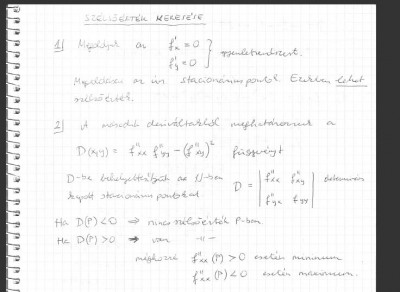 SZÉLSŐÉRTÉK KERESÉSE
1) Megoldjuk az f'x = 0
f'y = 0 } egyenletrendszert.
Megoldásai az ún. stacionárius pontok. Ezekben lehet
szélsőérték.
2) A második deriváltakból meghatározzuk a
D(x,y) = f''xx f''yy − (f''xy)² függvényt
D-be behelyettesítjük az 1)-ben
kapott stacionárius pontokat
D = | f''xx f''xy
f''yx f''yy | determináns
Ha D(P) < 0 ⇒ nincs szélsőérték P-ben.
Ha D(P) > 0 ⇒ van -11-
f''xx (P) > 0 esetén minimum
f''xx (P) < 0 esetén maximum.